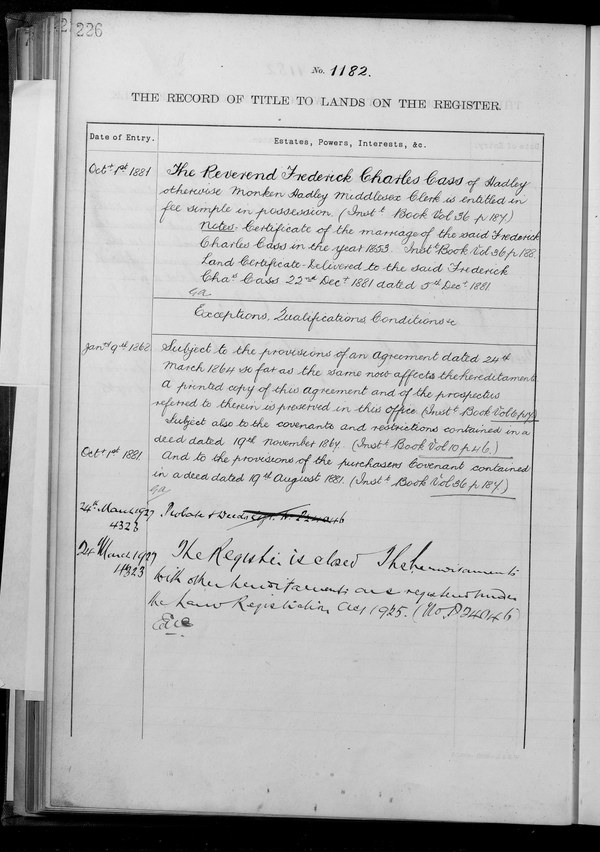 226
No. 1182.
THE RECORD OF TITLE TO LANDS ON THE REGISTER.
Date of Entry.
Estates, Powers, Interests, &c.
Octr 1st 1881
The Reverend Frederick Charles Cass of Hadley
otherwise Monken Hadley Middlesex Clerk is entitled in
fee simple in possession. (Instt Book Vol 36 p 187)
Notes. Certificate of the marriage of the said Frederick
Charles Cass in the year 1853. Instt Book Vol 36 p 188.
Land Certificate Delivered to the said Frederick
Chas Cass 22nd Decr 1881 dated 5th Decr 1881
Exceptions, Qualifications Conditions &c
Jany 9th 1868
Subject to the provisions of an agreement dated 24th
March 1864 so far as the same now affects the hereditaments
A printed copy of this agreement and of the prospectus
referred to therein is preserved in this office (Instt Book Vol 6
Subject also to the covenants and restrictions contained in a
deed dated 19th November 1867. (Instt Book Vol 10 p 46.)
Octr 1st 1881
And to the provisions of the purchasers Covenant contained
in a deed dated 19th August 1881. (Instt Book Vol 36 p 187)
24th March 1927
4323
Probate & Deeds
24 March 1927
4323
The Register is closed The hereditaments
with other hereditaments are registered under
the Land Registration Act 1925. (No. P24046)